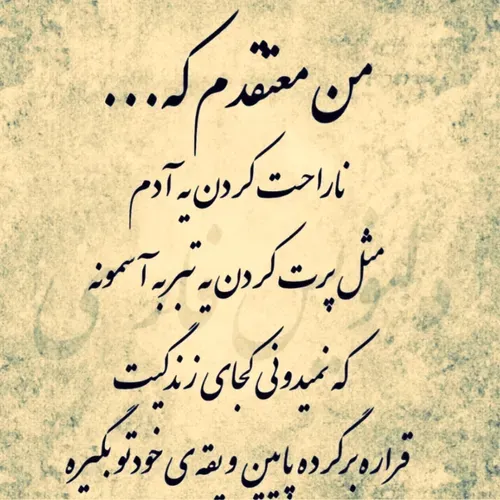 من معتقدم که...
ناراحت کردن یه آدم
مثل پرت کردن یه تبر به آسمونه
که نمیدونی کجای زندگیت
قراره برگرده پایین و یقه ی خودتو بگیره